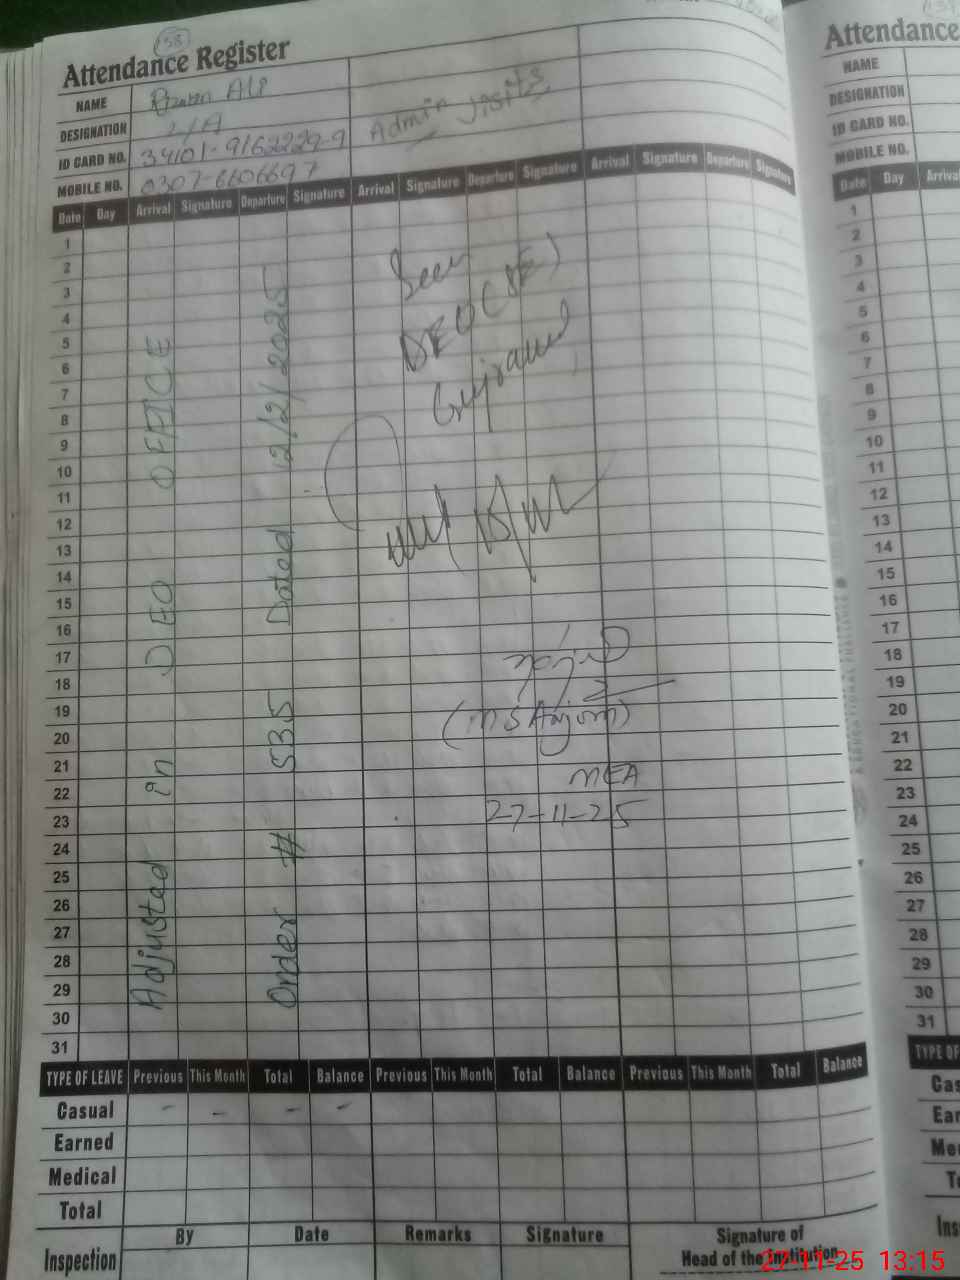 38
Attendance Register
NAME Ali
DESIGNATION
ID CARD NO. 34101-9162229-9
MOBILE NO. 0307-6606697
Admin visits
Date Day Arrival Signature Departure Signature Arrival Signature Departure Signature Arrival Signature Departure Signature
1
2
3
4
5
6
7
8
9
10
11
12
13
14
15
16
17
18
19
20
21
22
23
24
25
26
27
28
29
30
31
Adjusted in DEO OFFICE
Order # 535 Dated 2/2/2025
Seen
DEO (SE)
(MS Anjum)
MEA
27-11-25
TYPE OF LEAVE Previous This Month Total Balance Previous This Month Total Balance Previous This Month Total Balance
Casual - - - -
Earned
Medical
Total
Inspection By Date Remarks Signature Signature of
Head of the Institution
Attendance
NAME
DESIGNATION
ID CARD NO.
MOBILE NO.
Date Day Arrival
1
2
3
4
5
6
7
8
9
10
11
12
13
14
15
16
17
18
19
20
21
22
23
24
25
26
27
28
29
30
31
TYPE OF
Cas
Ear
Me
T
Ins
27-11-25 13:15